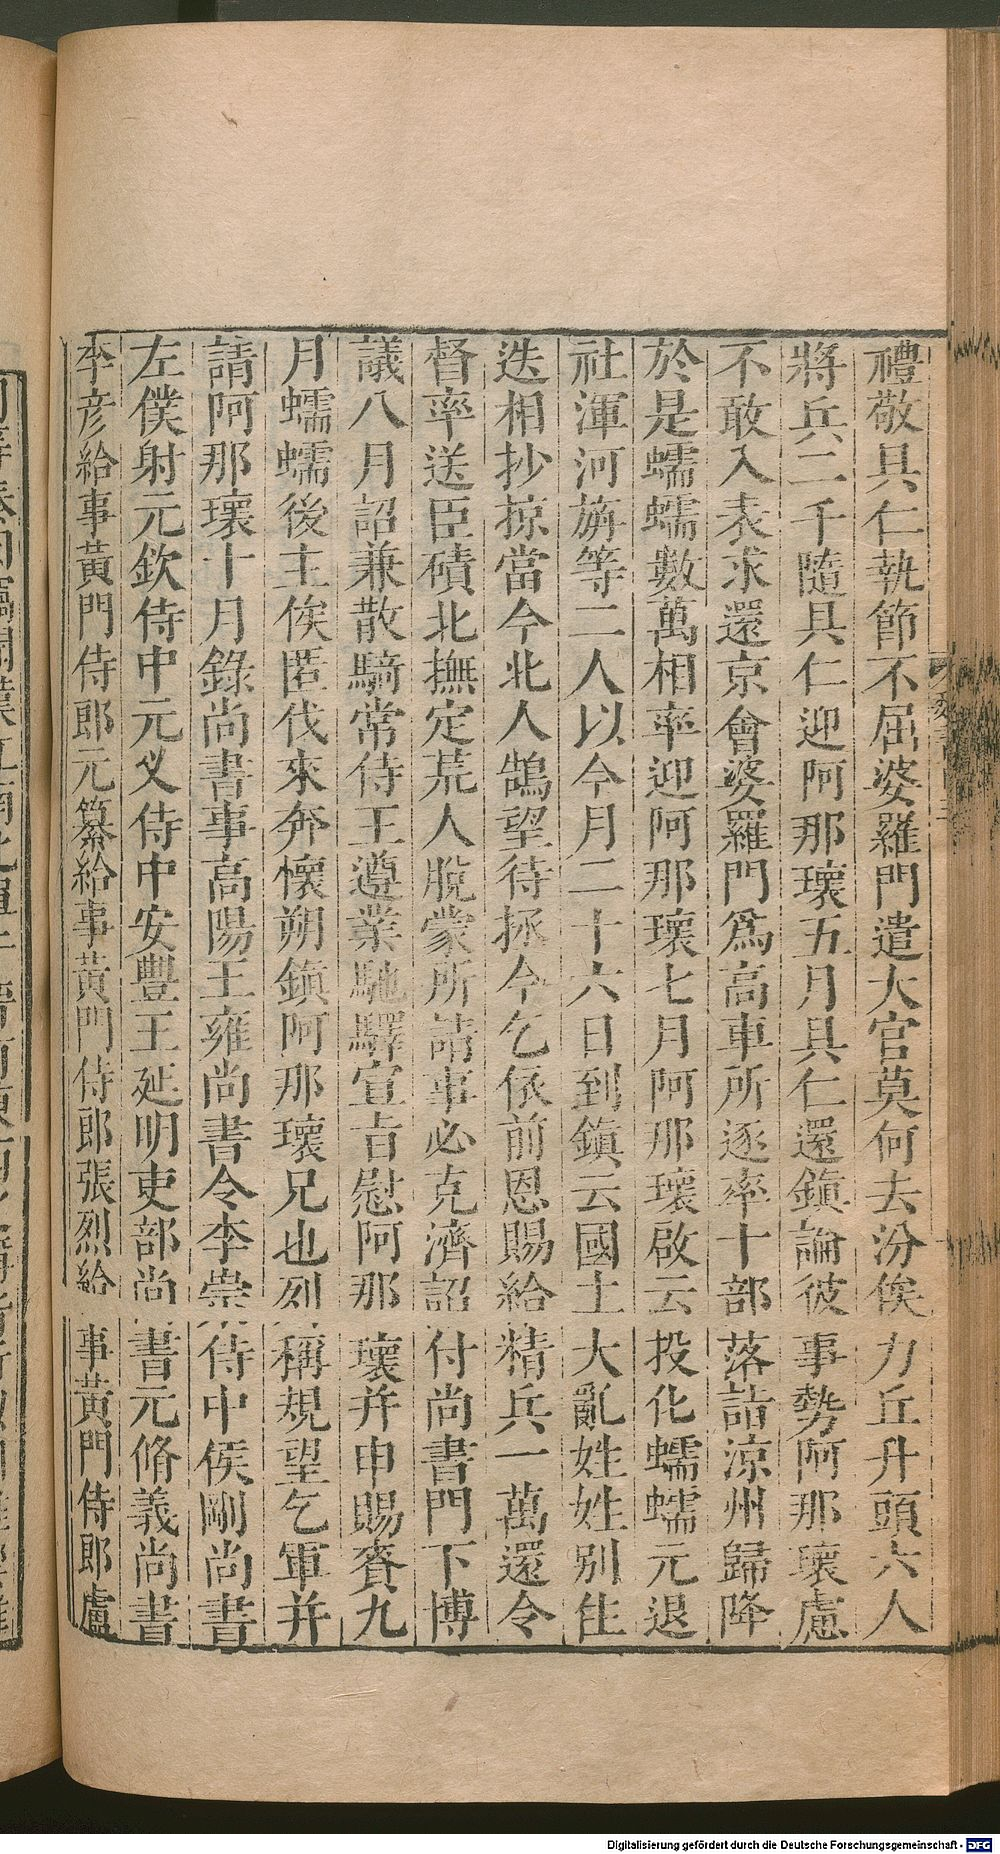 禮敬具仁執節不屈婆羅門遣大官莫何去汾俟力丘升頭六人
將兵二千隨具仁迎阿那瓌五月具仁還鎮論彼事勢阿那瓌慮
不敢入表求還京會婆羅門爲高車所逐率十部落詣涼州歸降
於是蠕蠕數萬相率迎阿那瓌七月阿那瓌啟云投化蠕蠕元退
社渾河旃等二人以今月二十六日到鎮云國土大亂姓姓别住
迭相抄掠當今北人鵠望待拯今乞依前恩賜給精兵一萬還令
督率送臣磧北撫定荒人脫蒙所請事必克濟詔付尚書門下博
議八月詔兼散騎常侍王遵業馳驛宣旨慰阿那瓌并申賜賚九
月蠕蠕後主俟匿伐來奔懷朔鎮阿那瓌兄也列稱規望乞軍并
請阿那瓌十月錄尚書事高陽王雍尚書令李崇侍中侯剛尚書
左僕射元欽侍中元乂侍中安豐王延明吏部尚書元脩義尚書
李彦給事黃門侍郎元纂給事黃門侍郎張烈給事黃門侍郎盧
Digitalisierung gefördert durch die Deutsche Forschungsgemeinschaft - DFG